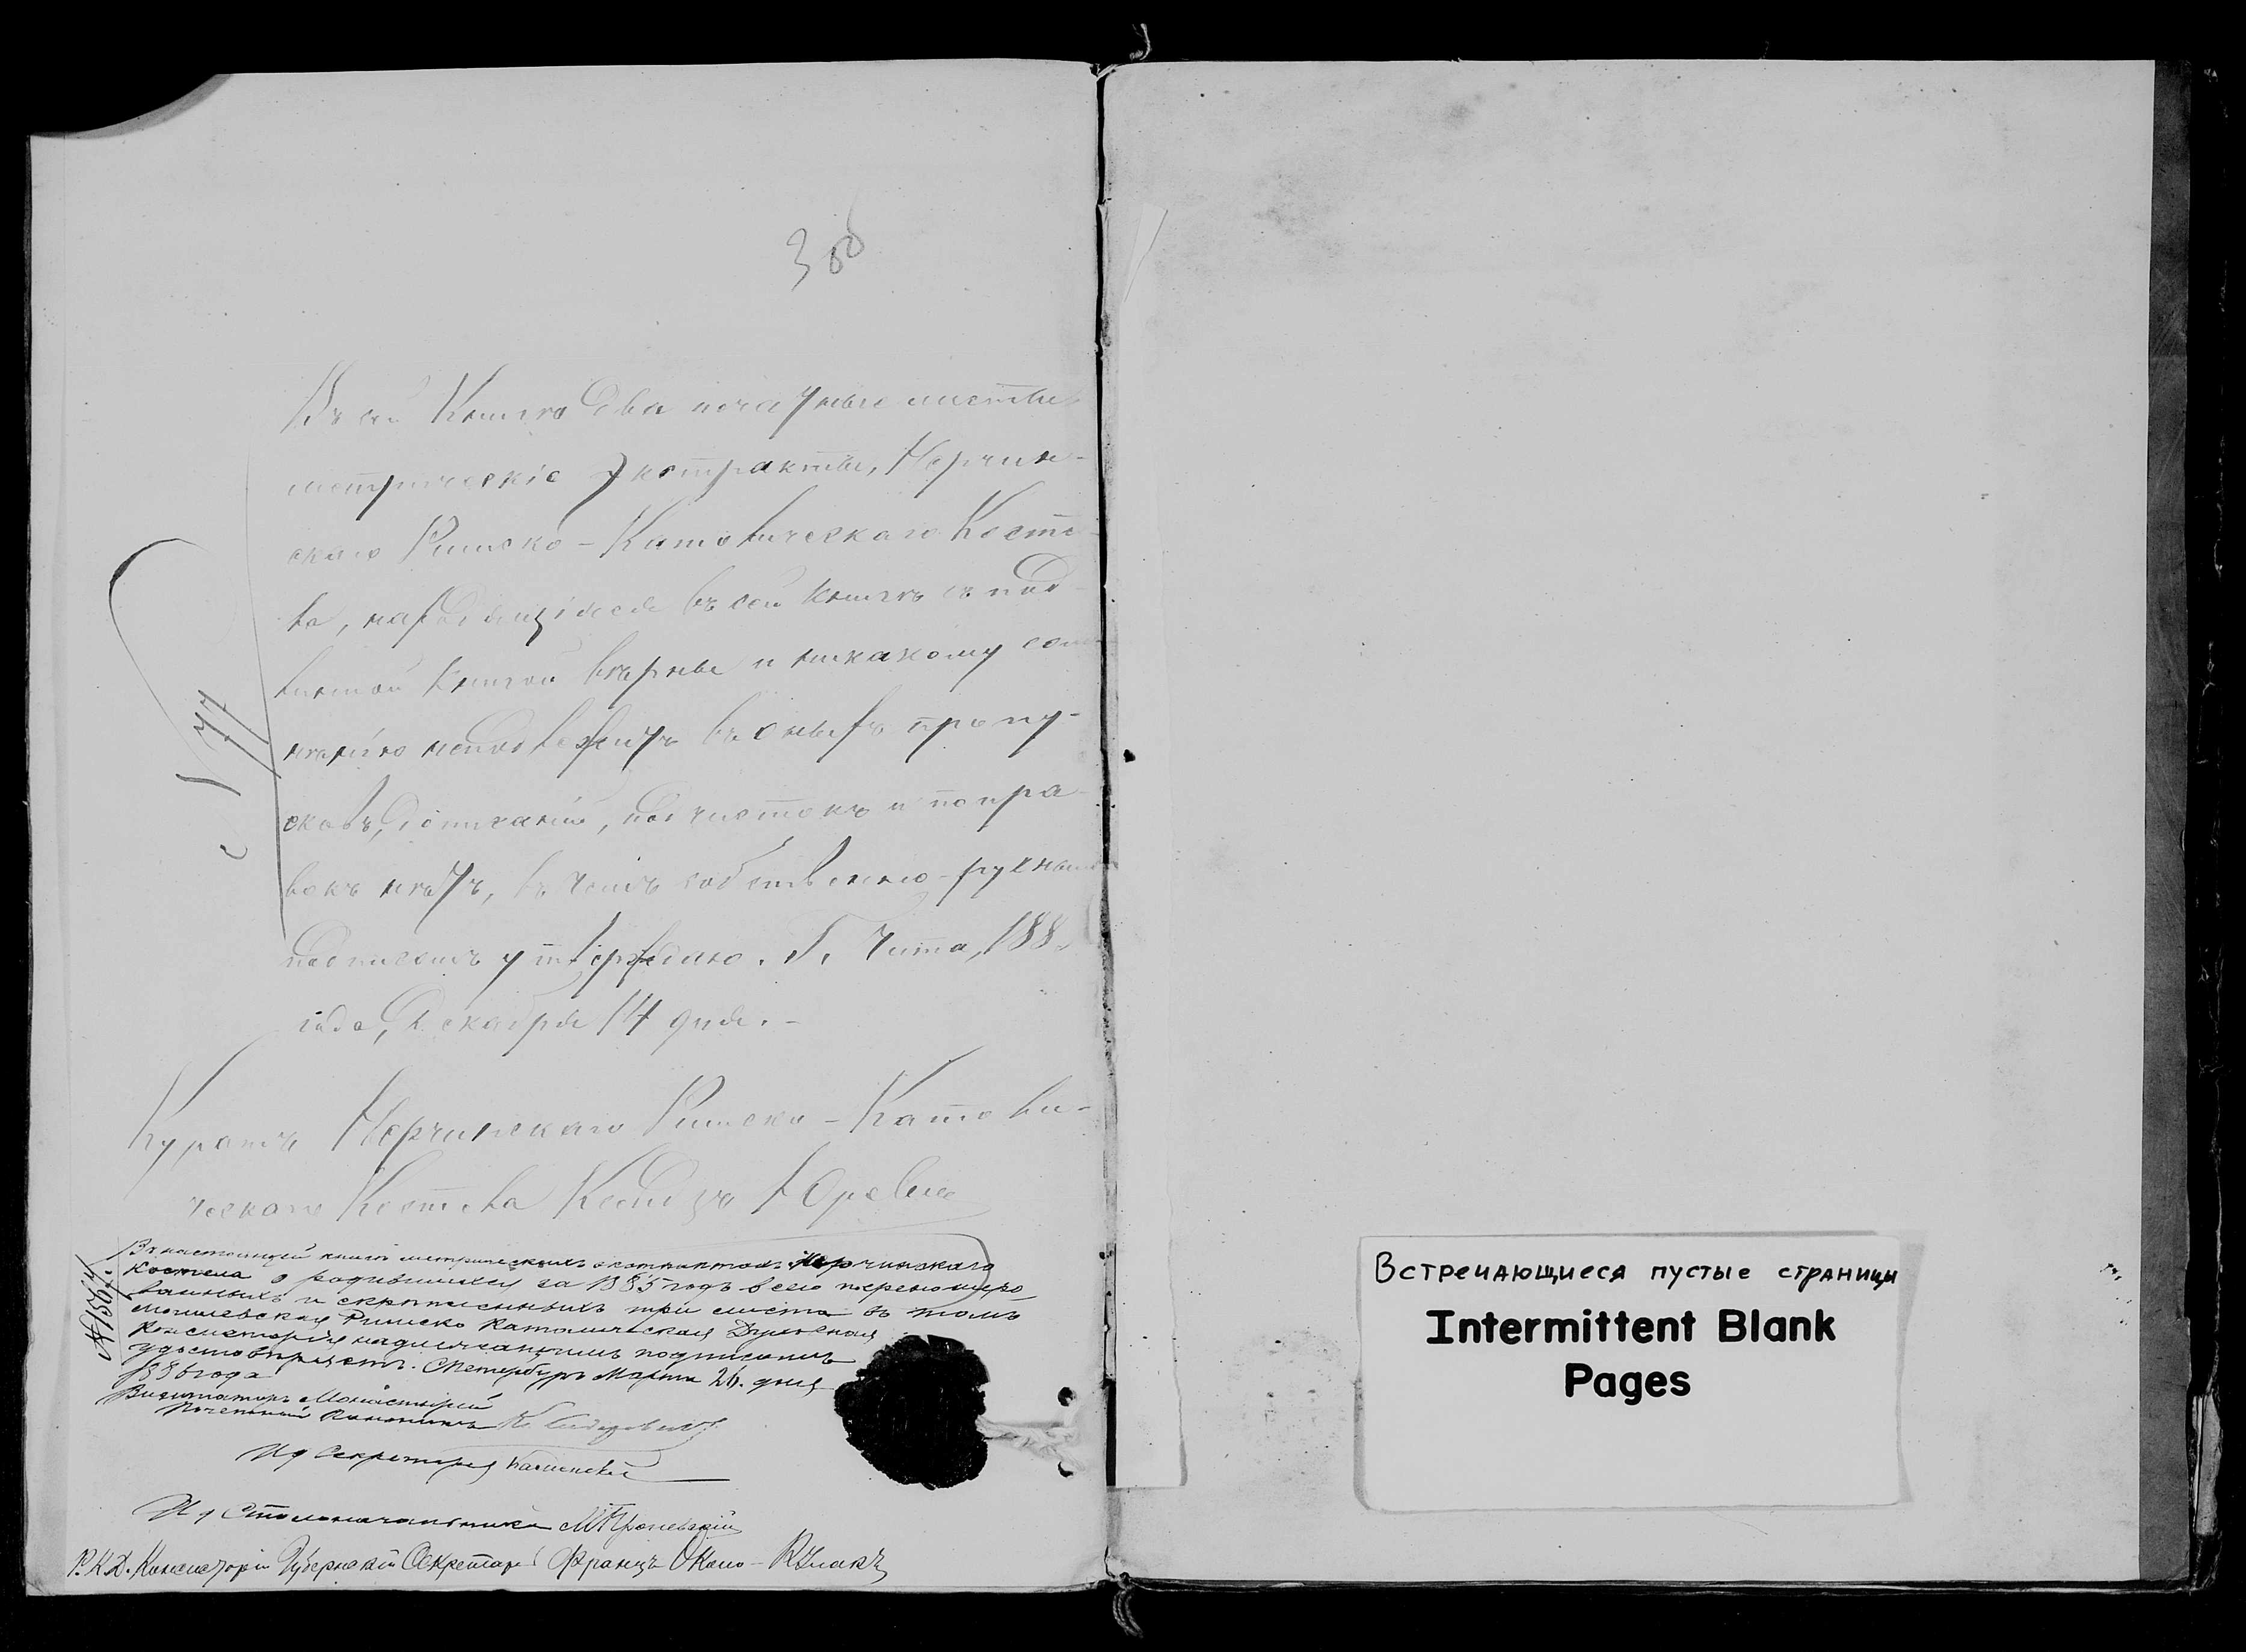 3 об
Въ сей Книгѣ два печатные листы
метрическіе Экстракты, Нерчин-
скаго Римско-Католическаго Косте-
ла, находящіяся въ сей книгѣ съ под-
линной Книгой вѣрны и никакому сом-
нѣнію неподлежитъ въ оныхъ пропу-
сковъ, дописаній, подчистокъ и попра-
вокъ нѣтъ, въ чемъ собственно-ручнымъ
подписомъ утверждаю. Г. Чита, 188
года, Декабря 14 дня.-
Куратъ Нерчинскаго Римско-Католи-
ческаго Костела Ксендзъ Юревич
№ 1564.
Въ настоящей книгѣ метрическихъ экстрактовъ Нерчинскаго
Костела о родившихся за 1885 годъ всего перенумеро-
ванныхъ и скрѣпленныхъ три листа въ томъ
Могилевская Римско Католическая Духовная
Консисторія надлежащимъ подписомъ
удостовѣряетъ. С Петербургъ Марта 26. дня
1886 года
Визитаторъ Монастырей
Почетный Каноникъ
И д Секретаря
И д Столоначальника
Р. К. Д. Консисторіи Губернскій Секретарь Францъ Окно-
Встречающиеся пустые страницы
Intermittent Blank
Pages